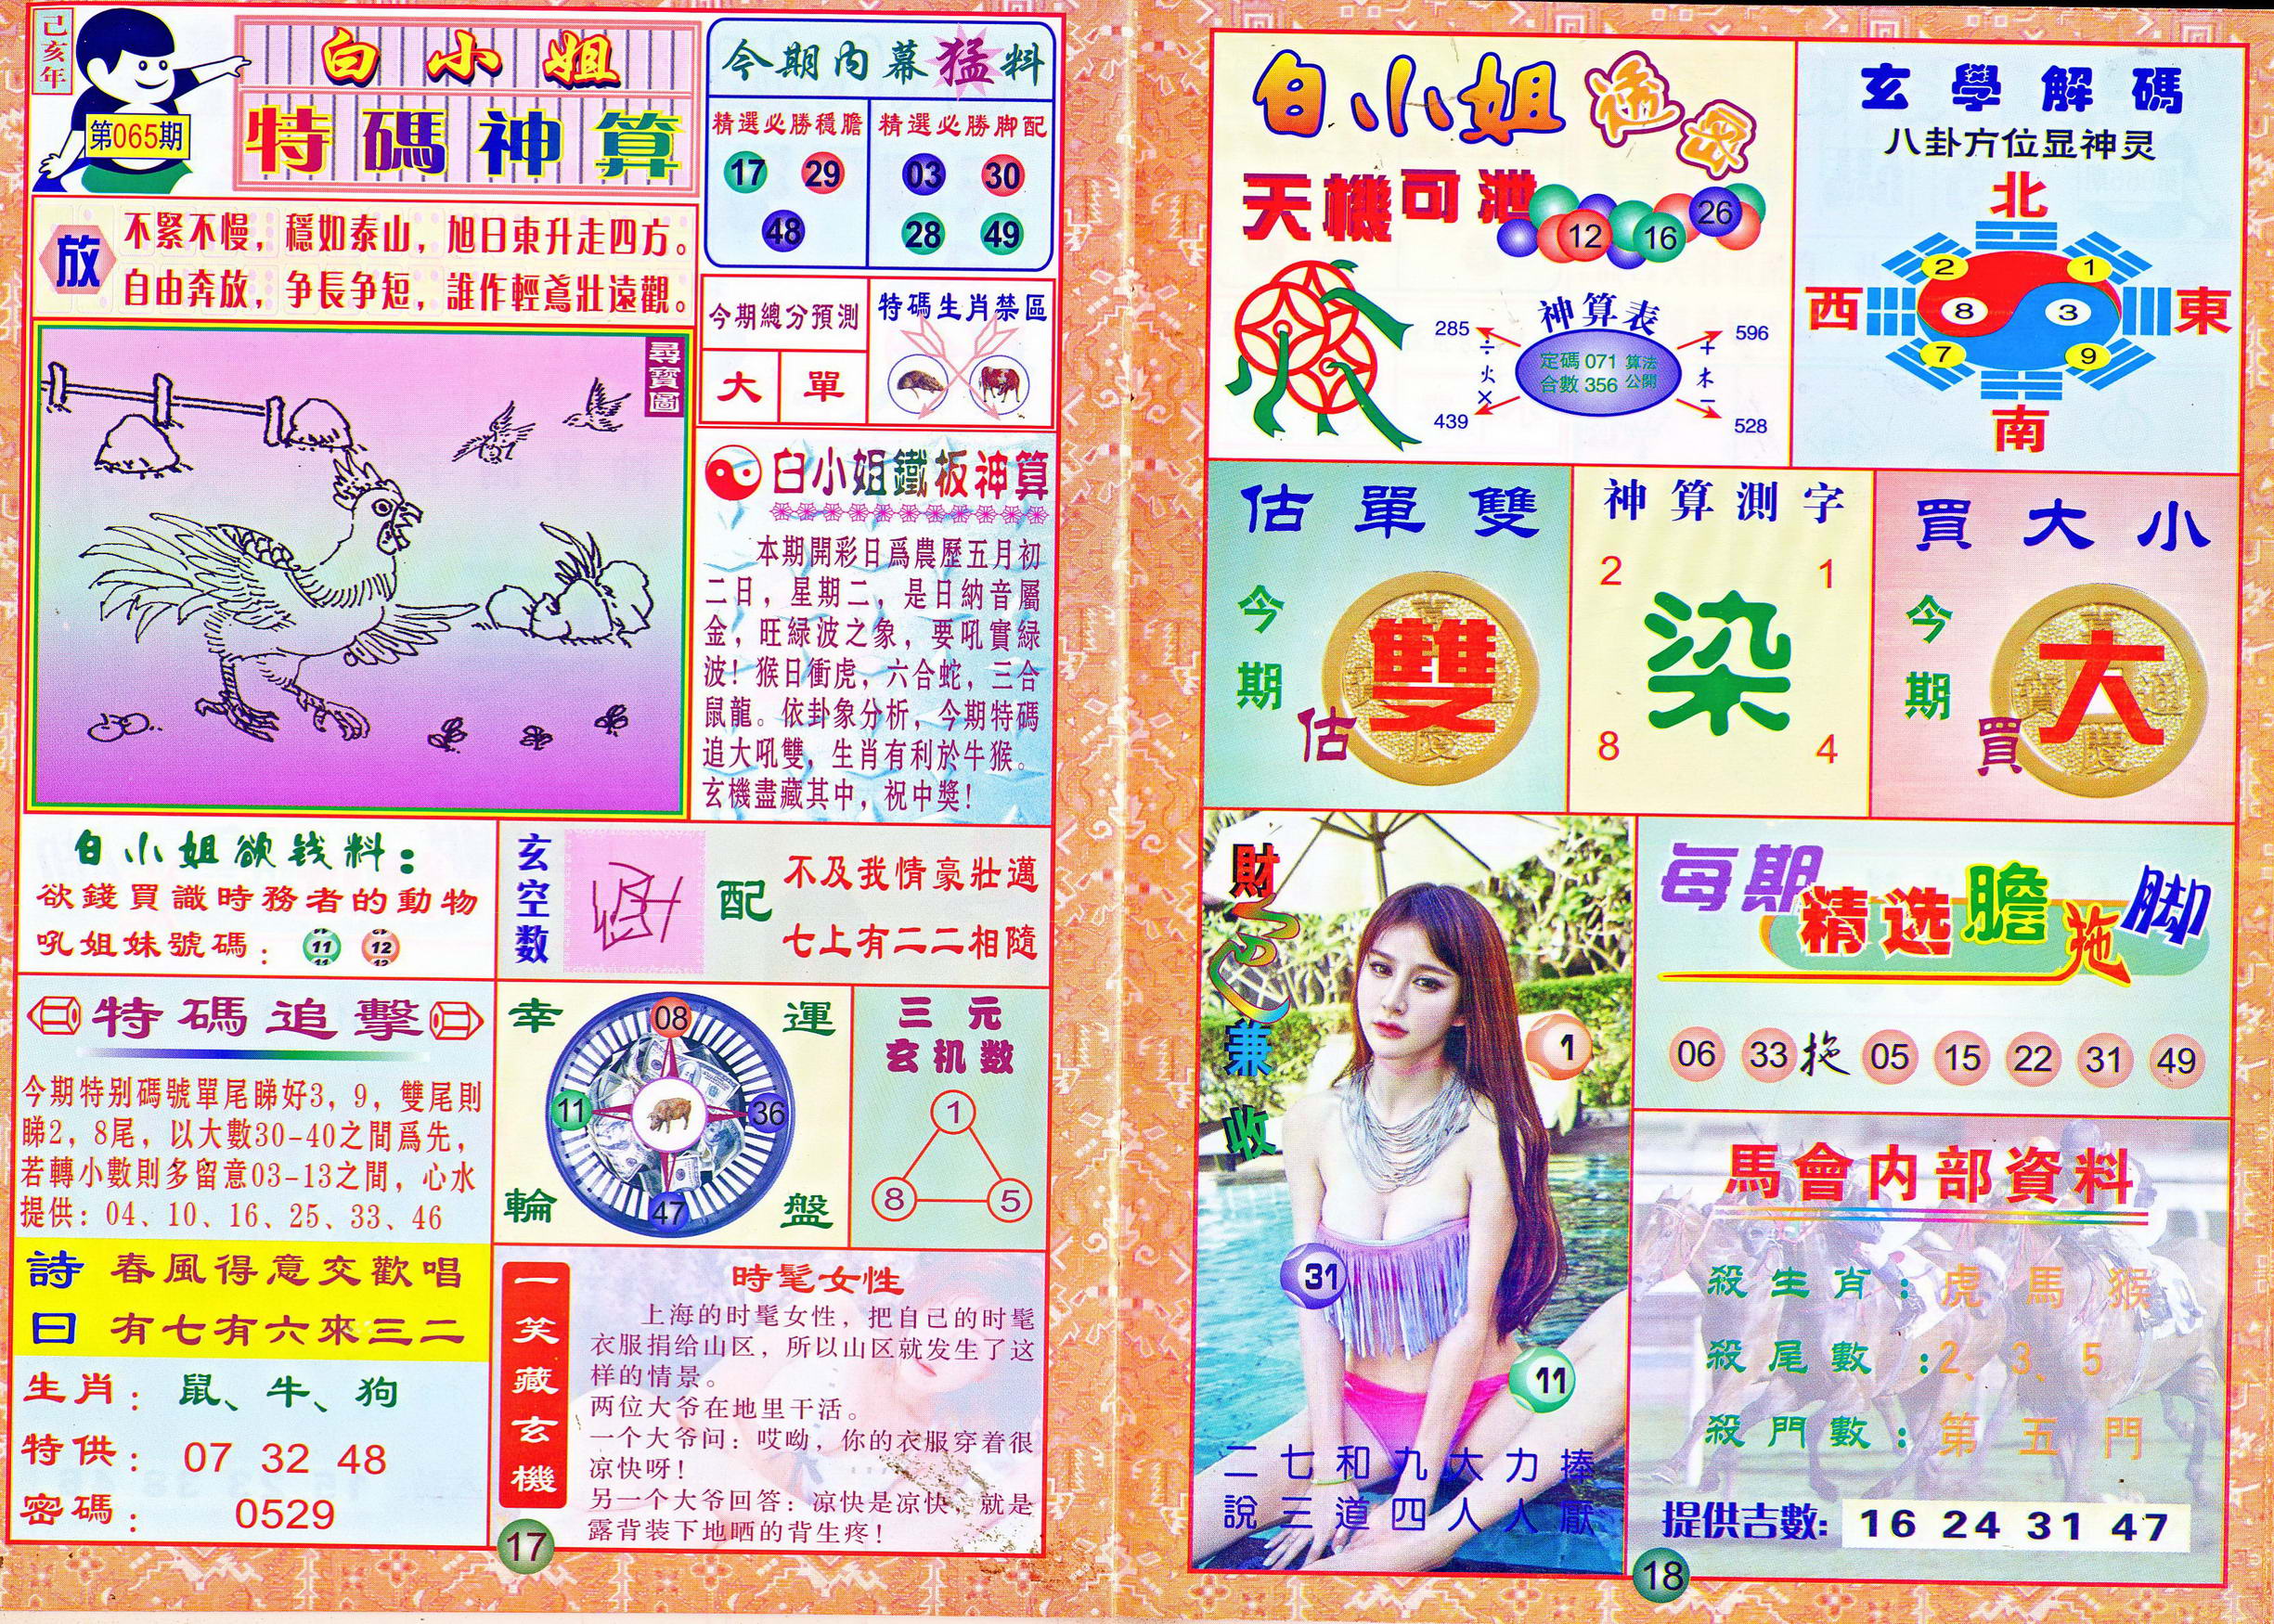 己亥年
第065期
白小姐
特碼神算
放
不緊不慢，穩如泰山，旭日東升走四方。
自由奔放，争長争短，誰作輕鳶壯遠觀。
尋寶圖
今期内幕猛料
精選必勝穩膽
17 29
48
精選必勝脚配
03 30
28 49
今期總分預測
大 單
特碼生肖禁區
白小姐鐵板神算
本期開彩日爲農歷五月初
二日，星期二，是日納音屬
金，旺緑波之象，要吼實緑
波！猴日衝虎，六合蛇，三合
鼠龍。依卦象分析，今期特碼
追大吼雙，生肖有利於牛猴。
玄機盡藏其中，祝中獎！
白小姐欲钱料：
欲錢買識時務者的動物
吼姐妹號碼： 11 12
玄空数
配
不及我情豪壯邁
七上有二二相隨
特碼追擊
今期特别碼號單尾睇好3，9，雙尾則
睇2，8尾，以大數30-40之間爲先，
若轉小數則多留意03-13之間，心水
提供：04、10、16、25、33、46
詩曰
春風得意交歡唱
有七有六來三二
生肖：鼠、牛、狗
特供：07 32 48
密碼：0529
幸運輪盤
08
11 36
47
三元
玄机数
1
8 5
一笑藏玄機
時髦女性
上海的时髦女性，把自己的时髦
衣服捐给山区，所以山区就发生了这
样的情景。
两位大爷在地里干活。
一个大爷问：哎呦，你的衣服穿着很
凉快呀！
另一个大爷回答：凉快是凉快，就是
露背装下地晒的背生疼！
17
白小姐透码
天機可泄
12 16 26
神算表
285 ÷ 火 × 439
定碼 071 算法
合數 356 公開
596 + 木 − 528
玄學解碼
八卦方位显神灵
北
2 1
西 8 3 東
7 9
南
估單雙
今期估
雙
神算測字
2 1
染
8 4
買大小
今期買
大
財色兼收
1
31
11
二七和九大力捧
說三道四人人厭
每期精选膽拖脚
06 33 拖 05 15 22 31 49
馬會内部資料
殺生肖：虎 馬 猴
殺尾數：2、3、5
殺門數：第五門
提供吉數：16 24 31 47
18